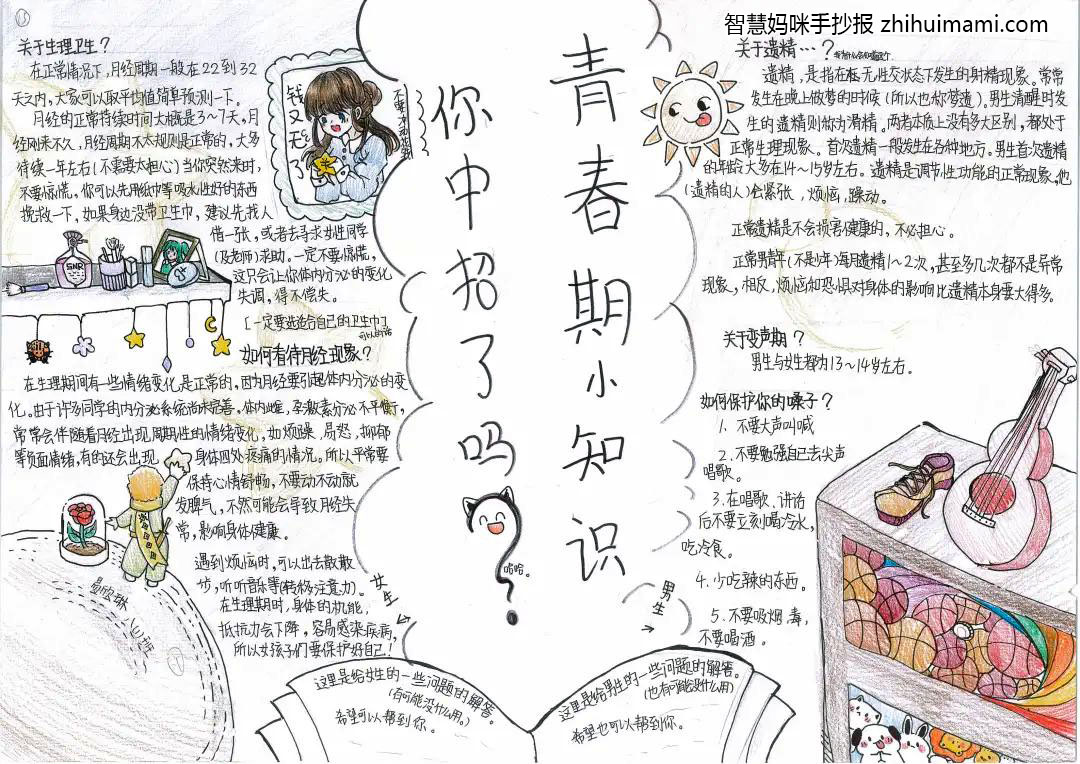 智慧妈咪手抄报 zhihuimami.com
青春期小知识
你中招了吗?
哈哈。
关于生理卫生?
在正常情况下,月经周期一般在22到32
天之内,大家可以取平均值简单预测一下。
月经的正常持续时间大概是3~7天,月
经刚来不久,月经周期不太规则是正常的,大多
持续一年左右(不需要太担心)当你突然来时,
不要惊慌,你可以先用纸巾等吸水性好的东西
挽救一下,如果身边没带卫生巾,建议先找人
借一张,或者去寻求女性同学
(及老师)求助。一定不要惊慌,
这只会让你体内分泌的变化
失调,得不偿失。
[一定要选适合自己的卫生巾]
可以的话
如何看待月经现象?
在生理期间有一些情绪变化是正常的,因为月经要引起体内分泌的变
化。由于许多同学的内分泌系统尚未完善,体内雌,孕激素分泌不平衡,
常常会伴随着月经出现周期性的情绪变化,如烦躁、易怒、抑郁
等负面情绪,有的还会出现身体四处疼痛的情况。所以平常要
保持心情舒畅,不要动不动就
发脾气,不然可能会导致月经失
常,影响身体健康。
遇到烦恼时,可以出去散散
步,听听音乐等(转移注意力)。
在生理期时,身体的机能,
抵抗力会下降,容易感染疾病,
所以女孩子们要保护好自己!
女生
这里是给女生的一些问题的解答。
(有可能没什么用。)
希望可以帮到你。
关于遗精…?
遗精,是指在无性交状态下发生的射精现象。常常
发生在晚上做梦的时候(所以也称梦遗)。男生清醒时发
生的遗精则称为滑精。两者本质上没有多大区别,都处于
正常生理现象。首次遗精一般发生在各种地方。男生首次遗精
的年龄大多在14~15岁左右。遗精是调节性功能的正常现象。他
(遗精的人)会紧张,烦恼,躁动。
正常遗精是不会损害健康的,不必担心。
正常男青年(不是少年)每月遗精1~2次,甚至多几次都不是异常
现象,相反,烦恼和恐惧对身体的影响比遗精本身要大得多。
关于变声期?
男生与女生都为13~14岁左右。
如何保护你的嗓子?
1. 不要大声叫喊
2. 不要勉强自己去尖声
唱歌。
3.在唱歌、讲话
后不要立刻喝冷水,
吃冷食。
4. 少吃辣的东西。
5. 不要吸烟、毒,
不要喝酒。
男生
这里是给男生的一些问题的解答。
(也有可能没什么用)
希望也可以帮到你。